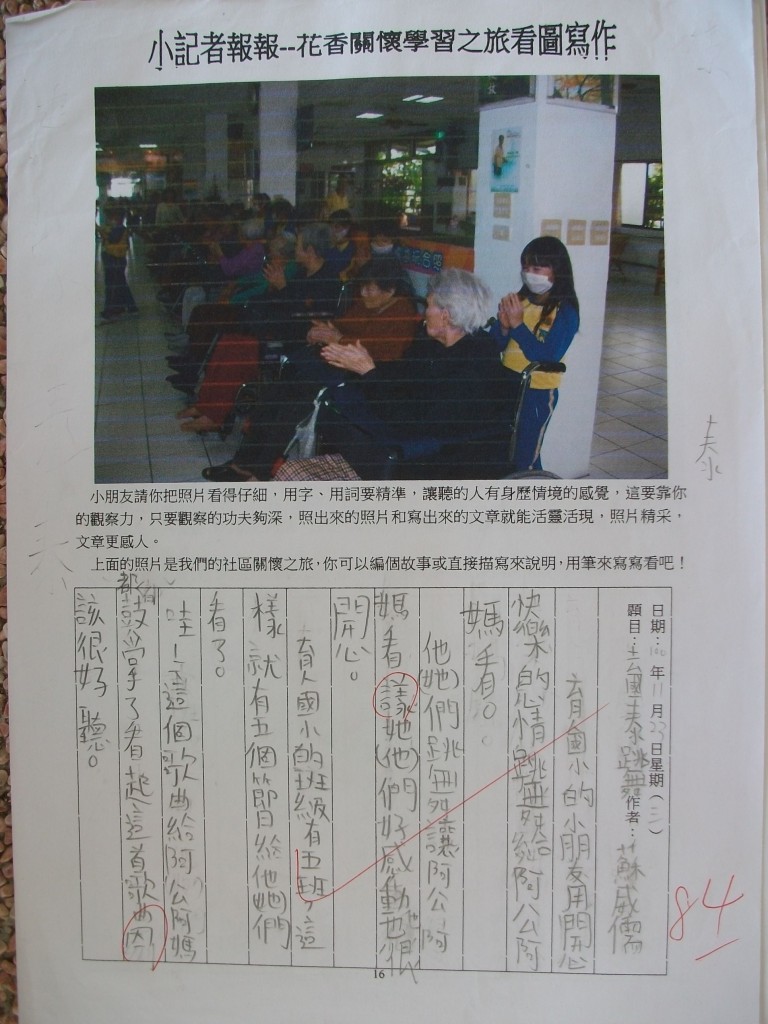 小記者報報--花香關懷學習之旅看圖寫作
小朋友請你把照片看得仔細，用字、用詞要精準，讓聽的人有身歷情境的感覺，這要靠你
的觀察力，只要觀察的功夫夠深，照出來的照片和寫出來的文章就能活靈活現，照片精采，
文章更感人。
上面的照片是我們的社區關懷之旅，你可以編個故事或直接描寫來說明，用筆來寫寫看吧！
日期：100年11月23日星期（三）
題目：跳舞 作者：蘇威儒
育國小的小朋友用開心
快樂的心情跳舞給阿公阿
媽看。
他(她)們跳舞讓阿公、阿
媽看議她(他)們好感動也很
開心。
育人國小的班級有五班，這
樣就有五個節目給他她們
看了。
哇！這個歌曲給阿公阿媽
都鼓掌了看起這首歌曲
該很好聽。
84
16